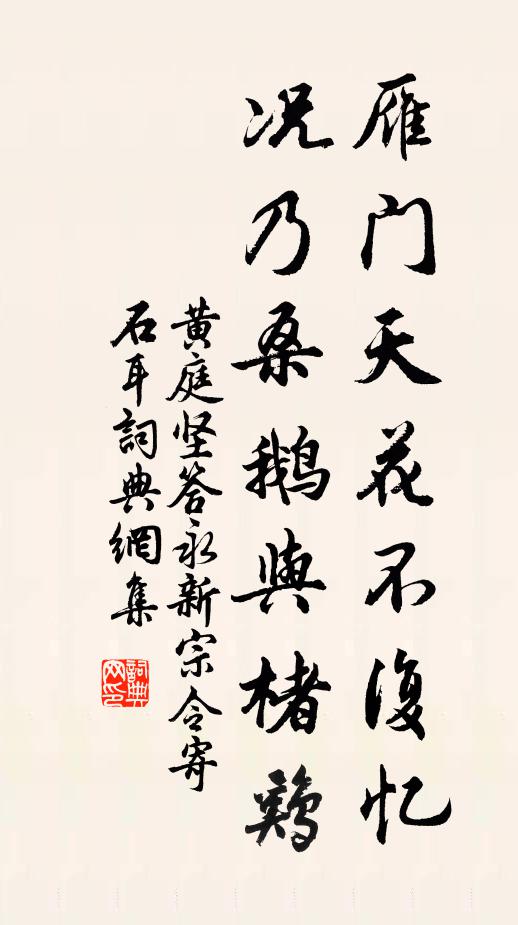 雁门天花不復忆
况乃桑鹅與楮鸡
黄庭坚答永新宗令寄
石耳詞典網集
詞典
网印